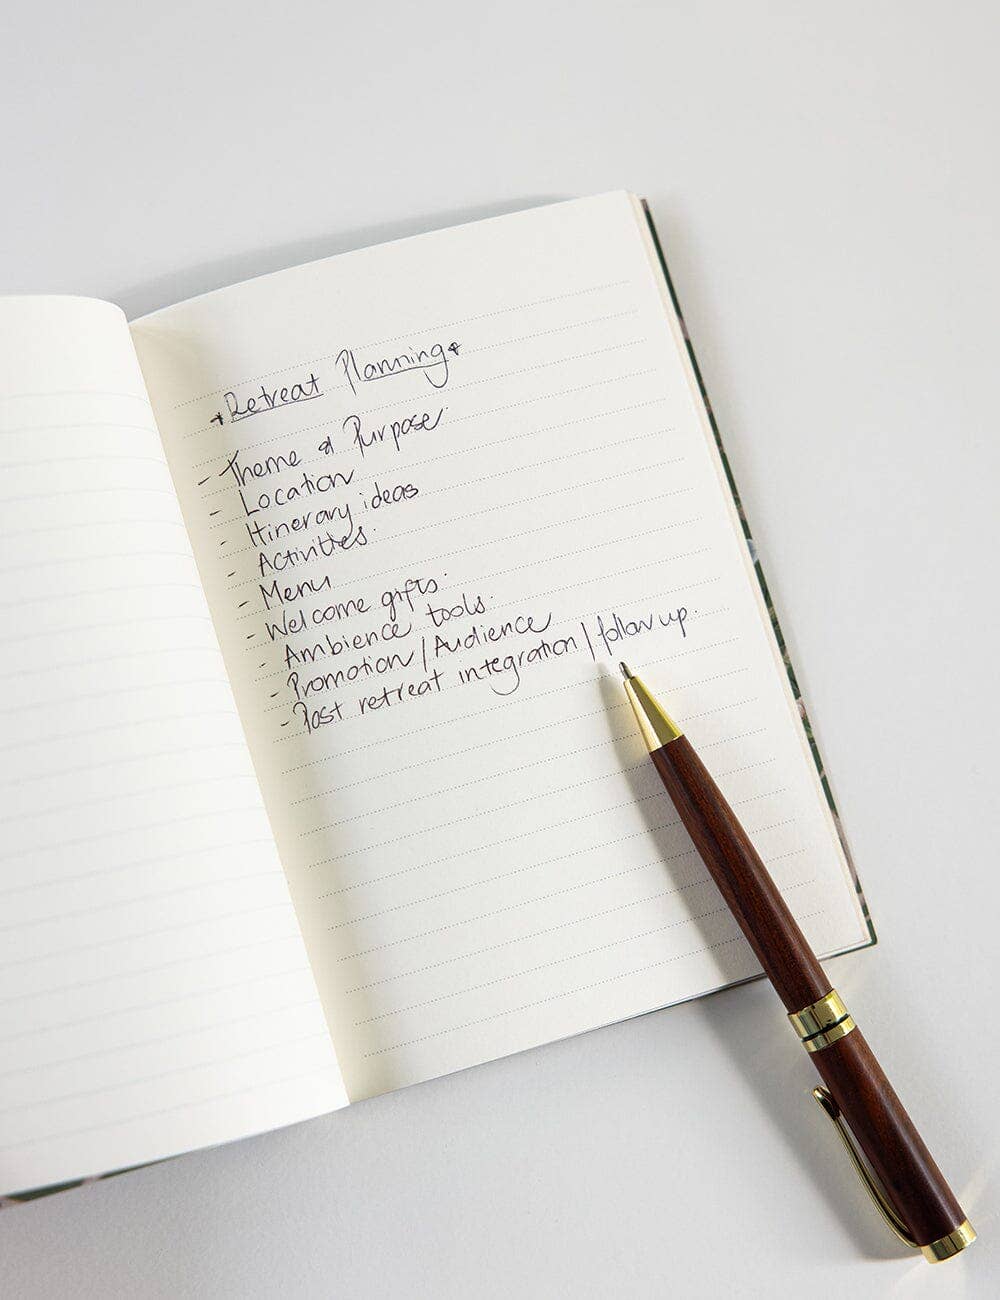 *Retreat Planning*
- Theme & Purpose
- Location
- Itinerary ideas
- Activities.
- Menu
- Welcome gifts.
- Ambience tools.
- Promotion / Audience
- Post retreat integration / follow up.